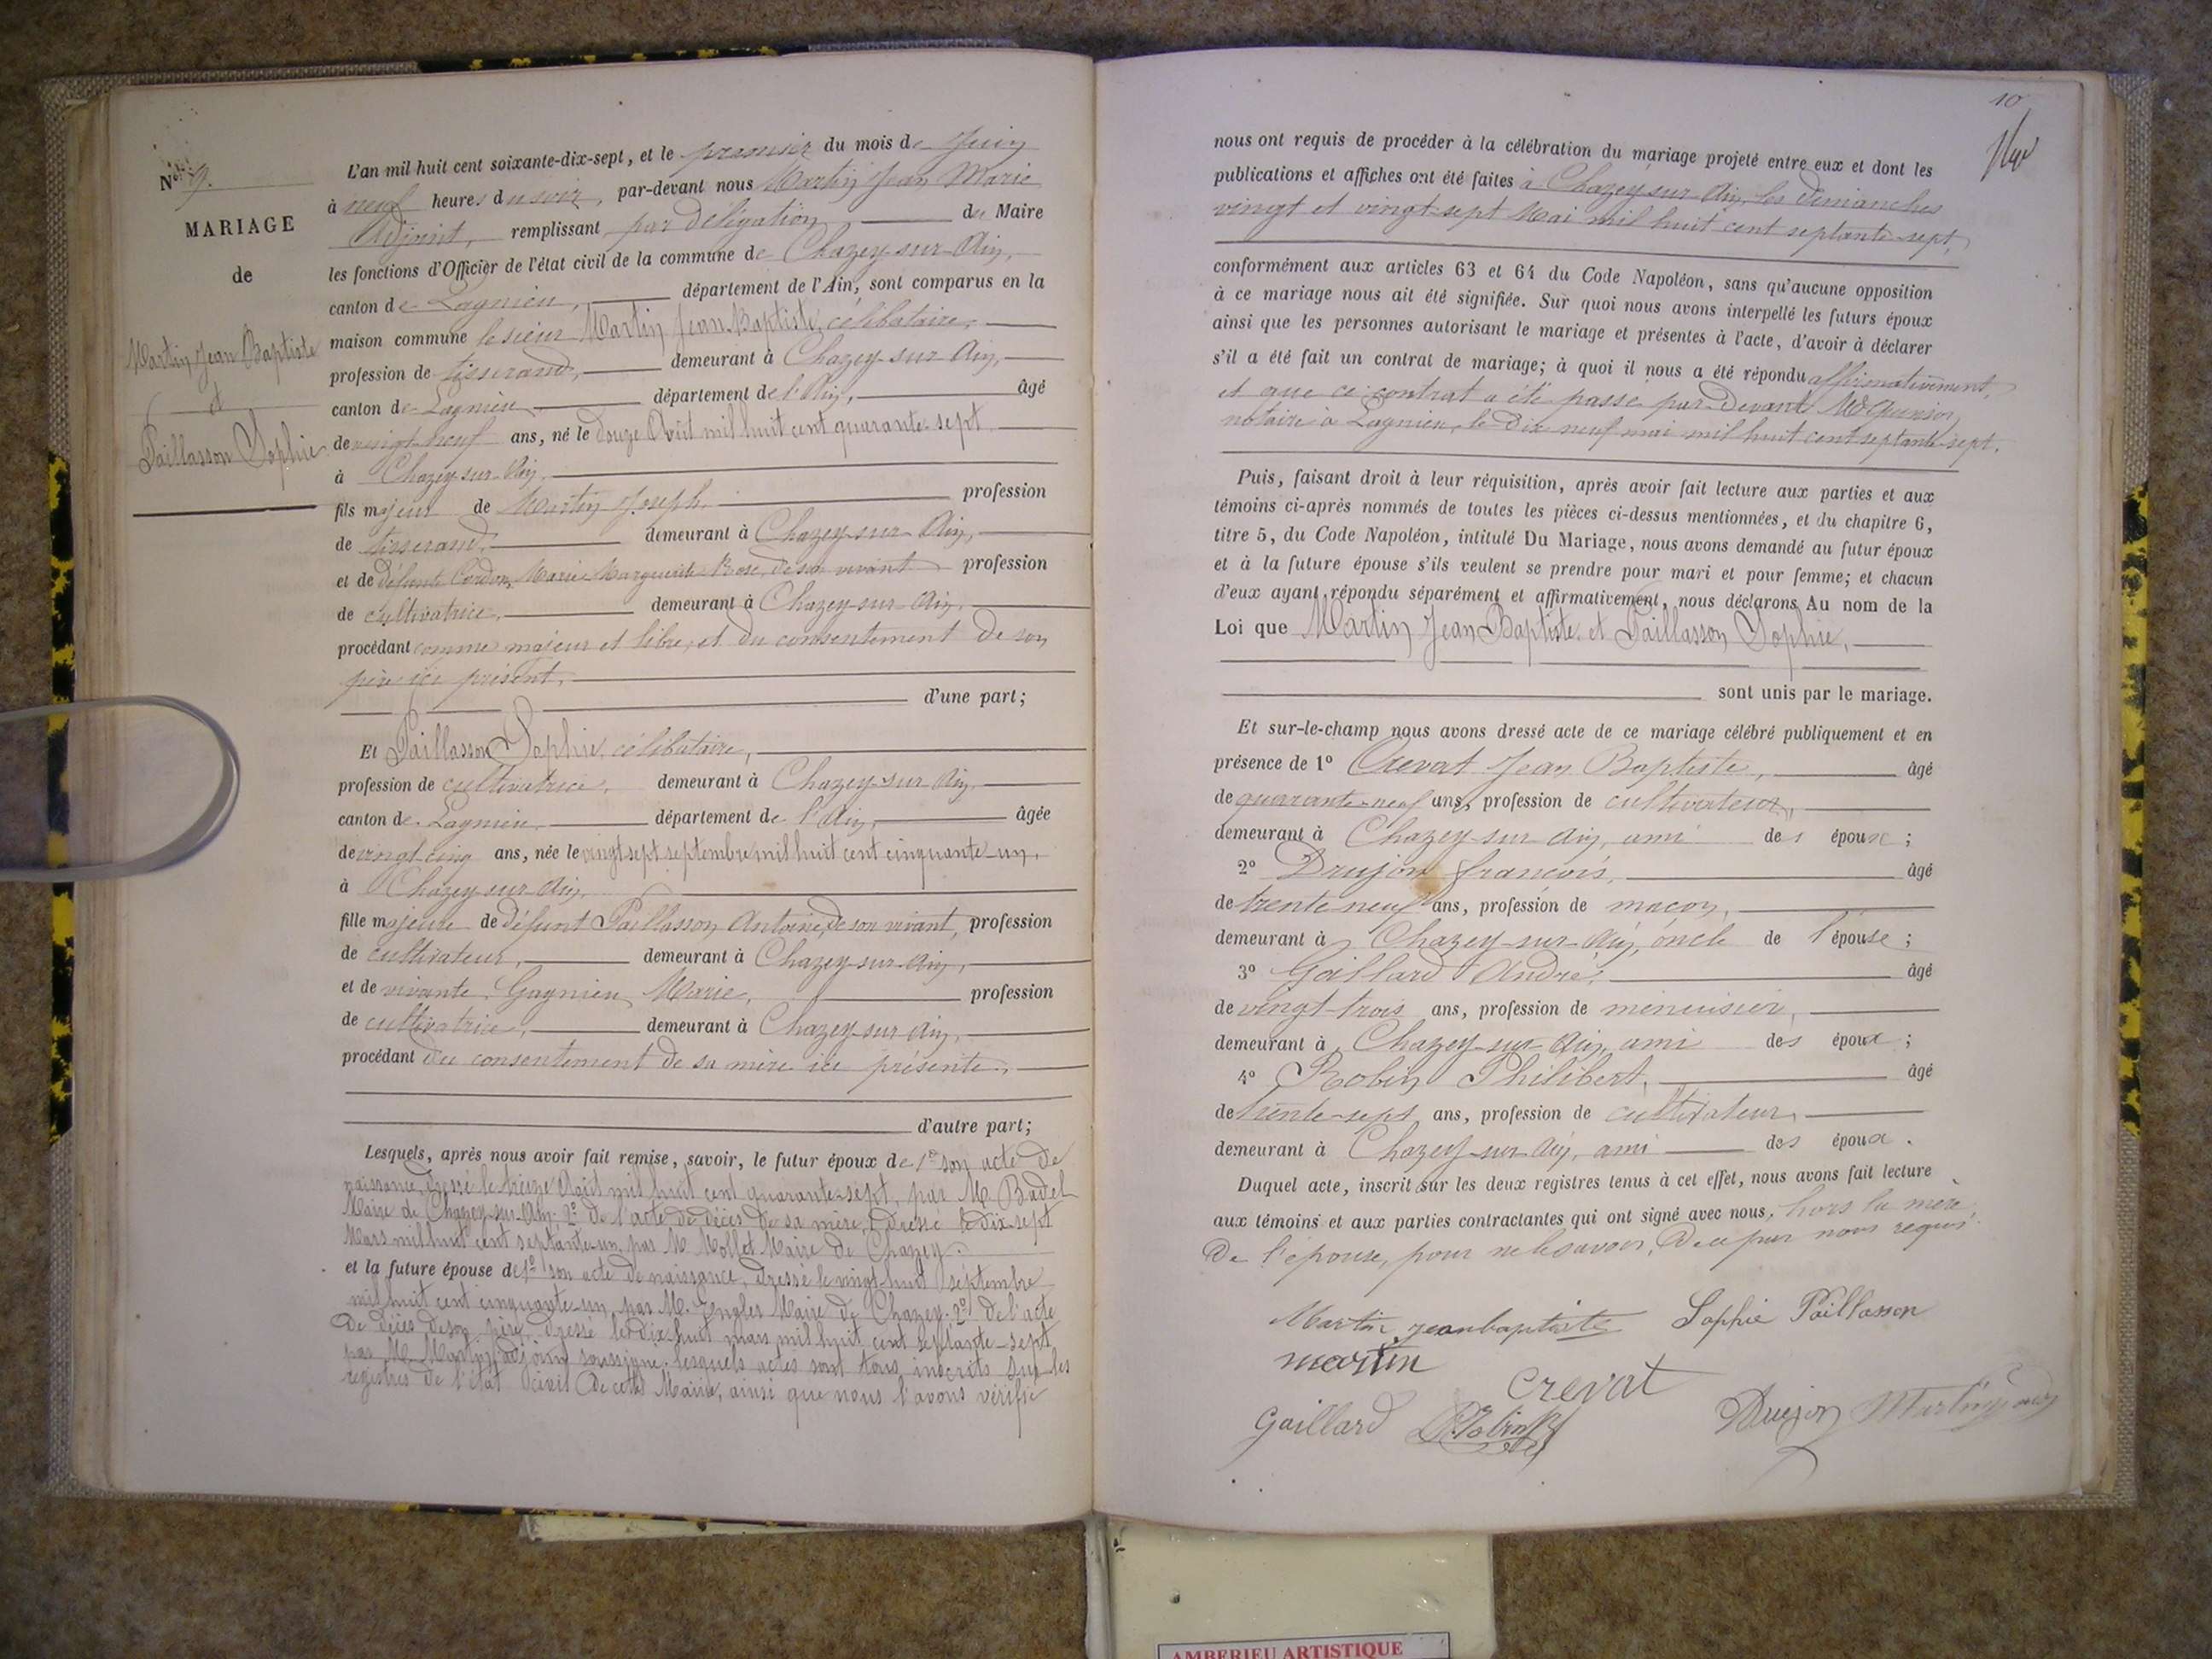 N° 9.
MARIAGE
de
Martin Jean Baptiste
et
Paillasson Sophie
L'an mil huit cent soixante-dix-sept, et le premier du mois de Juin
à neuf heures du soir, par-devant nous Martin Jean Marie
Adjoint, remplissant par délégation du Maire
les fonctions d'Officier de l'état civil de la commune de Chazey-sur-Ain,
canton de Lagnieu, département de l'Ain, sont comparus en la
maison commune le sieur Martin Jean Baptiste, célibataire,
profession de tisserand, demeurant à Chazey-sur-Ain,
canton de Lagnieu département de l'Ain, âgé
de vingt-neuf ans, né le douze Août mil huit cent quarante-sept
à Chazey-sur-Ain,
fils majeur de Martin Joseph, profession
de tisserand, demeurant à Chazey-sur-Ain,
et de défunte Cordon Marie Marguerite Rose, de son vivant profession
de cultivatrice, demeurant à Chazey-sur-Ain,
procédant comme majeur et libre, et du consentement de son
père ici présent,
d'une part;
Et Paillasson Sophie, célibataire,
profession de cultivatrice, demeurant à Chazey-sur-Ain,
canton de Lagnieu département de l'Ain, âgée
de vingt-cinq ans, née le vingt sept septembre mil huit cent cinquante-un,
à Chazey-sur-Ain,
fille majeure de défunt Paillasson Antoine, de son vivant, profession
de cultivateur, demeurant à Chazey-sur-Ain,
et de vivante Gagnieu Marie, profession
de cultivatrice, demeurant à Chazey-sur-Ain,
procédant du consentement de sa mère ici présente,
d'autre part;
Lesquels, après nous avoir fait remise, savoir, le futur époux de 1° son acte de
naissance, dressé le treize Août mil huit cent quarante-sept, par M. Badel
Maire de Chazey-sur-Ain. 2° de l'acte de décès de sa mère, dressé le dix-sept
Mars mil huit cent septante-un par M. Mollet Maire de Chazey.
et la future épouse de 1° son acte de naissance, dressé le vingt-huit septembre
mil huit cent cinquante-un, par M. Maire de Chazey. 2° de l'acte
de décès de son père, dressé le dix-huit mars mil huit cent septante-sept
par M. Martin adjoint soussigné. lesquels actes sont tous inscrits sur les
registres de l'état civil de cette Mairie, ainsi que nous l'avons vérifié
10
nous ont requis de procéder à la célébration du mariage projeté entre eux et dont les
publications et affiches ont été faites à Chazey-sur-Ain, les dimanches
vingt et vingt-sept Mai mil huit cent septante-sept,
conformément aux articles 63 et 64 du Code Napoléon, sans qu'aucune opposition
à ce mariage nous ait été signifiée. Sur quoi nous avons interpellé les futurs époux
ainsi que les personnes autorisant le mariage et présentes à l'acte, d'avoir à déclarer
s'il a été fait un contrat de mariage; à quoi il nous a été répondu affirmativement,
et que ce contrat a été passé par-devant Me
notaire à Lagnieu, le dix neuf mai mil huit cent septante-sept.
Puis, faisant droit à leur réquisition, après avoir fait lecture aux parties et aux
témoins ci-après nommés de toutes les pièces ci-dessus mentionnées, et du chapitre 6,
titre 5, du Code Napoléon, intitulé Du Mariage, nous avons demandé au futur époux
et à la future épouse s'ils veulent se prendre pour mari et pour femme; et chacun
d'eux ayant répondu séparément et affirmativement, nous déclarons Au nom de la
Loi que Martin Jean Baptiste et Paillasson Sophie,
sont unis par le mariage.
Et sur-le-champ nous avons dressé acte de ce mariage célébré publiquement et en
présence de 1° Crevat Jean Baptiste, âgé
de quarante-neuf ans, profession de cultivateur,
demeurant à Chazey-sur-Ain, ami des époux;
2° Drujon françois, âgé
de trente neuf ans, profession de maçon,
demeurant à Chazey-sur-Ain, oncle de l'épouse;
3° Gaillard André, âgé
de vingt-trois ans, profession de menuisier,
demeurant à Chazey-sur-Ain, ami des époux;
4° Robin Philibert, âgé
de trente-sept ans, profession de cultivateur,
demeurant à Chazey-sur-Ain, ami des époux.
Duquel acte, inscrit sur les deux registres tenus à cet effet, nous avons fait lecture
aux témoins et aux parties contractantes qui ont signé avec nous, hors la mère,
de l'épouse, pour ne le savoir, de ce par nous requis.
Martin jeanbaptiste Sophie Paillasson
martin
Crevat
Gaillard P. Robin Drujon Martin
AMBERIEU ARTISTIQUE